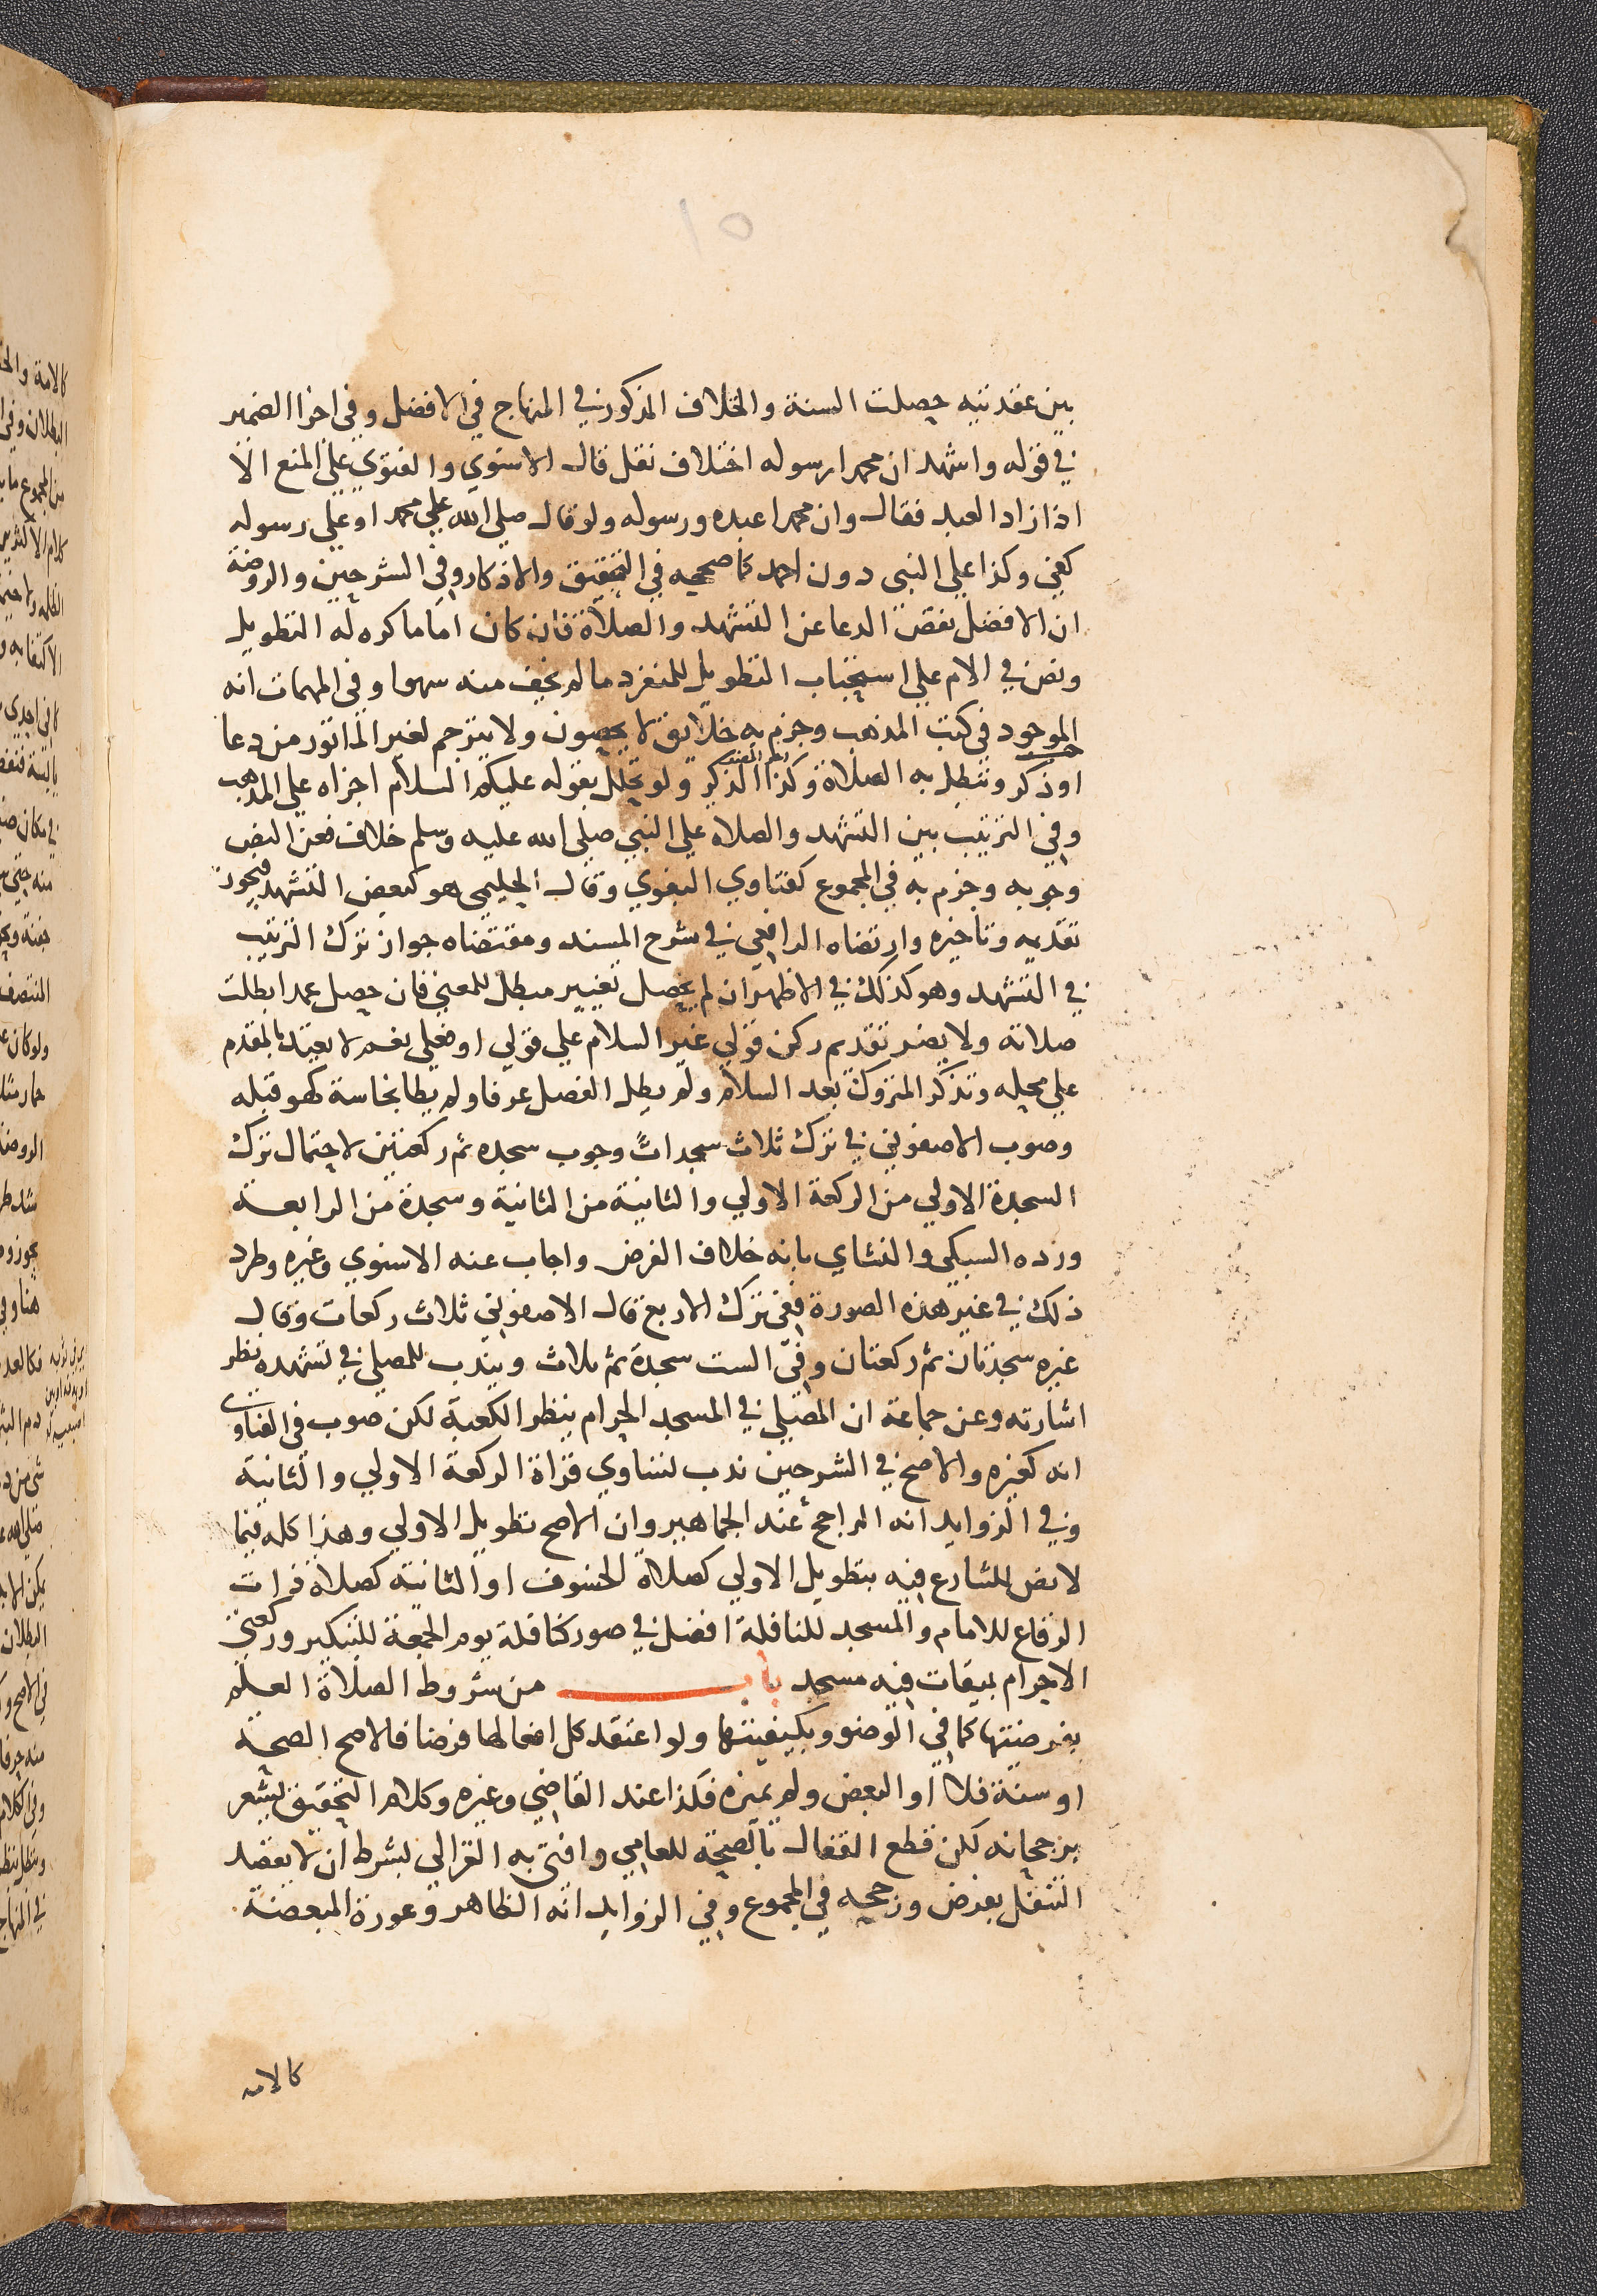 ١٥
بين عقدتيه حصلت السنة والخلاف المذكور في المنهاج في الافضل وفي اجزا الضمير
في قوله واشهد ان محمدا رسوله اختلاف نقل قال الاسنوي والفتوي علي المنع الا
اذا زاد العبد فقال وان محمدا عبده ورسوله ولو قال صلي الله علي محمد او علي رسوله
كفي وكذا علي النبي دون احمد كما صححه في التحقيق والاذكار وفي الشرحين والروضة
ان الافضل نقص الدعا عن التشهد والصلاة فان كان اماما كره له التطويل
ونص في الام علي استحباب التطويل للمنفرد ما لم يخف منه سهوا وفي المهمات انه
الموجود في كتب المذهب وجزم به خلايق لا يحصون ولا يترجم لغير الماثور من دعا
او ذكر وتبطل به الصلاة وكذا الذكر ولو تحلل بقوله عليكم السلام اجزاه علي المذهب
وفي الترتيب بين التشهد والصلاة علي النبي صلي الله عليه وسلم خلاف فعن النص
وجوبه وجزم به في المجموع كفتاوي البغوي وقال الحليمي هو كبعض التشهد فيجوز
تقديمه وتاخيره وارتضاه الرافعي في شرح المسند ومقتضاه جواز ترك الترتيب
في التشهد وهو كذلك في الاظهر ان لم يحصل تغيير مبطل للمعني فان حصل عمدا بطلت
صلاته ولا يضر تقديم ركن قولي غير السلام علي قولي او فعلي نعم لا يعتد بالمقدم
علي محله وتذكر المتروك بعد السلام ولم يطل الفصل عرفا ولم يطا نجاسة كهو قبله
وصوب الاصفوني في ترك ثلاث سجدات وجوب سجده ثم ركعتين لاحتمال ترك
السجدة الاولي من الركعة الاولي والثانية من الثانية وسجدة من الرابعة
ورده السبكي والنشاي بانه خلاف الفرض واجاب عنه الاسنوي وغيره وطرد
ذلك في غير هذه الصورة ففي ترك الاربع قال الاصفوني ثلاث ركعات وقال
غيره سجدتان ثم ركعتان وفي الست سجدة ثم ثلاث ويندب للمصلي في تشهده نظر
اشارته وعن جماعة ان المصلي في المسجد الحرام ينظر الكعبة لكن صوب في الفتاوي
انه كغيره والاصح في الشرحين ندب تساوي قراة الركعة الاولي والثانية
وفي الزوايد انه الراجح عند الجماهير وان الاصح تطويل الاولي وهذا كله فيما
لا نص للشارع فيه بتطويل الاولي كصلاة الخسوف او الثانية كصلاة ذات
الرقاع للامام والمسجد للنافلة افضل في صور كنافلة يوم الجمعة للتبكير وركعتي
الاحرام بميقات فيه مسجد باب من شروط الصلاة العلم
بفرضيتها كما في الوضو وبكيفيتها ولو اعتقد كل افعالها فرضا فالاصح الصحة
او سنة فلا او البعض ولم يميزه فكذا عند القاضي وغيره وكلام التحقيق يشعر
برجحانه لكن قطع القفال بالصحة للعامي وافتي به الغزالي بشرط ان لا يقصد
التنفل بفرض ورجحه في المجموع وفي الزوايد انه الظاهر وعورة المبعضة
كالامه